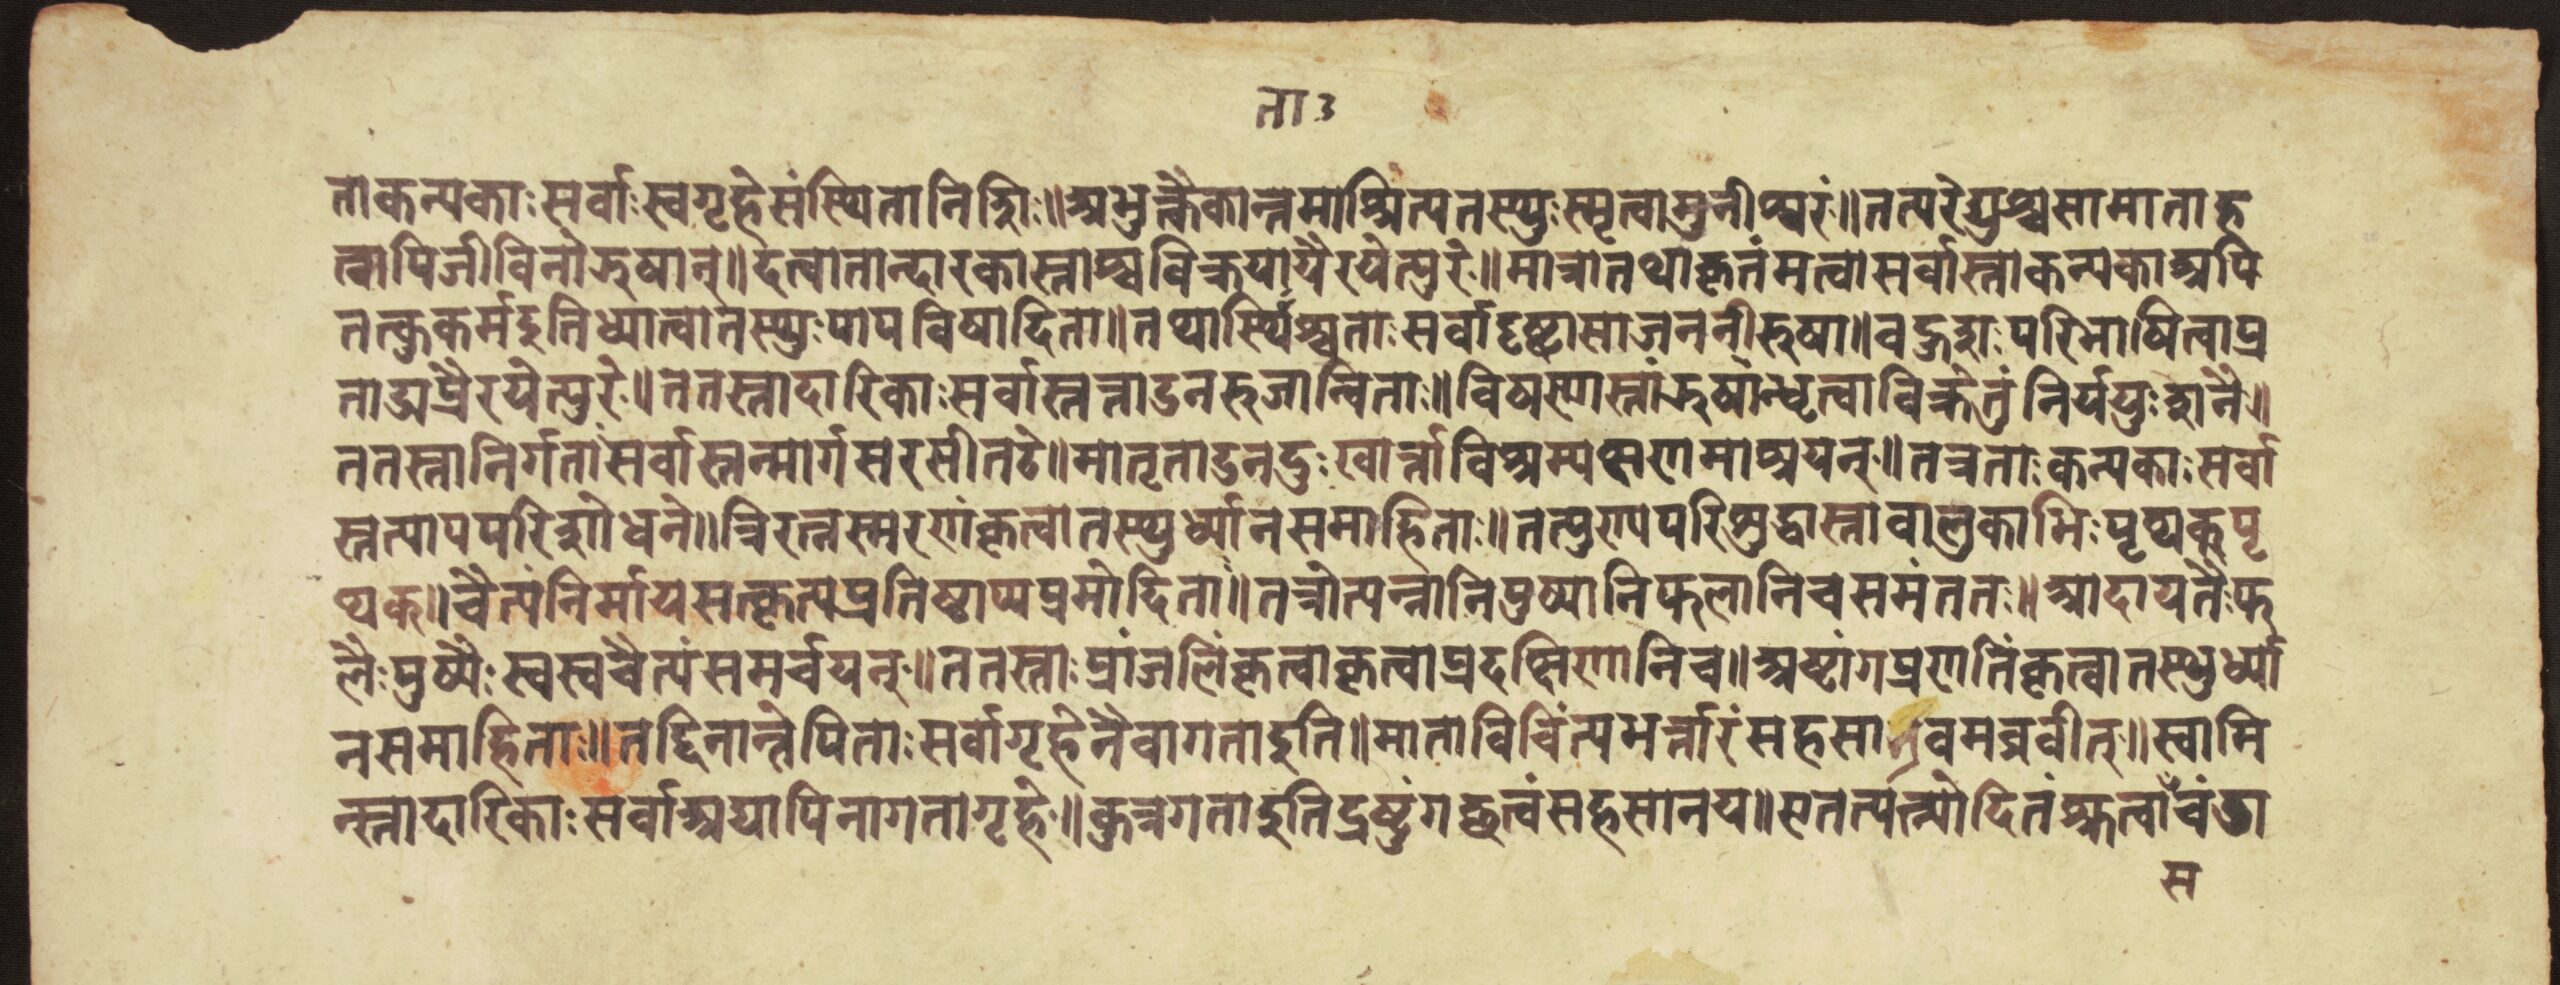 ता ३
ताकन्यकाःसर्वाःस्वगृहेसंस्थितानिशिः॥अभुक्त्वैकान्तमाश्रित्यतस्थुःस्मृत्वामुनीश्वरं॥तत्परेद्युश्चसामाताह
त्वापिजीविनोझषान्॥दत्वातान्दारकास्ताश्चविक्रयायैरयेत्पुरं॥मात्रातथाकृतंमत्वासर्वास्ताकन्यकाअपि
तत्कुकर्मइतिध्यात्वातस्थुःपापविषादिता॥तथास्थिश्चताःसर्वादृष्ट्वासाजननीरुषा॥वहुशःपरिभाषित्वाप्र
ताड्यप्रैरयेत्पुरं॥ततस्तादारिकाःसर्वास्तत्ताडनरुजान्विताः॥विष्यस्यास्तांझषान्धृत्वाविक्रेतुंनिर्ययुःशनै॥
ततस्तानिर्गतांसर्वास्तन्मार्गसरसीतटे॥मातृताडनदुःखार्त्ताविश्रम्यशरणमाश्रयन्॥तत्रताःकन्यकाःसर्वा
स्तत्पापपरिशोधने॥त्रिरत्नस्मरणंकृत्वातस्थुर्ध्यानसमाहिताः॥तत्पुण्यपरिशुद्धास्तावालुकाभिःपृथक्पृ
थक्॥चैत्यंनिर्मायसत्कृत्यप्रतिष्ठाप्यप्रमोदिता॥तत्रोत्पन्नानिपुष्पानिफलानिचसमंततः॥आदायतैःफ
लैःपुष्पैःस्वस्वचैत्यंसमर्चयन्॥ततस्ताःप्रांजलिंकृत्वाकृत्वाप्रदक्षिणानिच॥अष्टांगप्रणतिंकृत्वातस्थुर्ध्या
नसमाहिताः॥तद्दिनान्तेपिताःसर्वागृहेनैवागताइति॥माताविचिंत्यभर्त्तारंसहसा वमब्रवीत्॥स्वामि
न्स्तादारिकाःसर्वाअद्यापिनागतागृहे॥कुत्रगताइतिद्रष्टुंगच्छत्वंसहसानय॥एतत्पत्न्योदितंश्रुत्वाचंडा
स